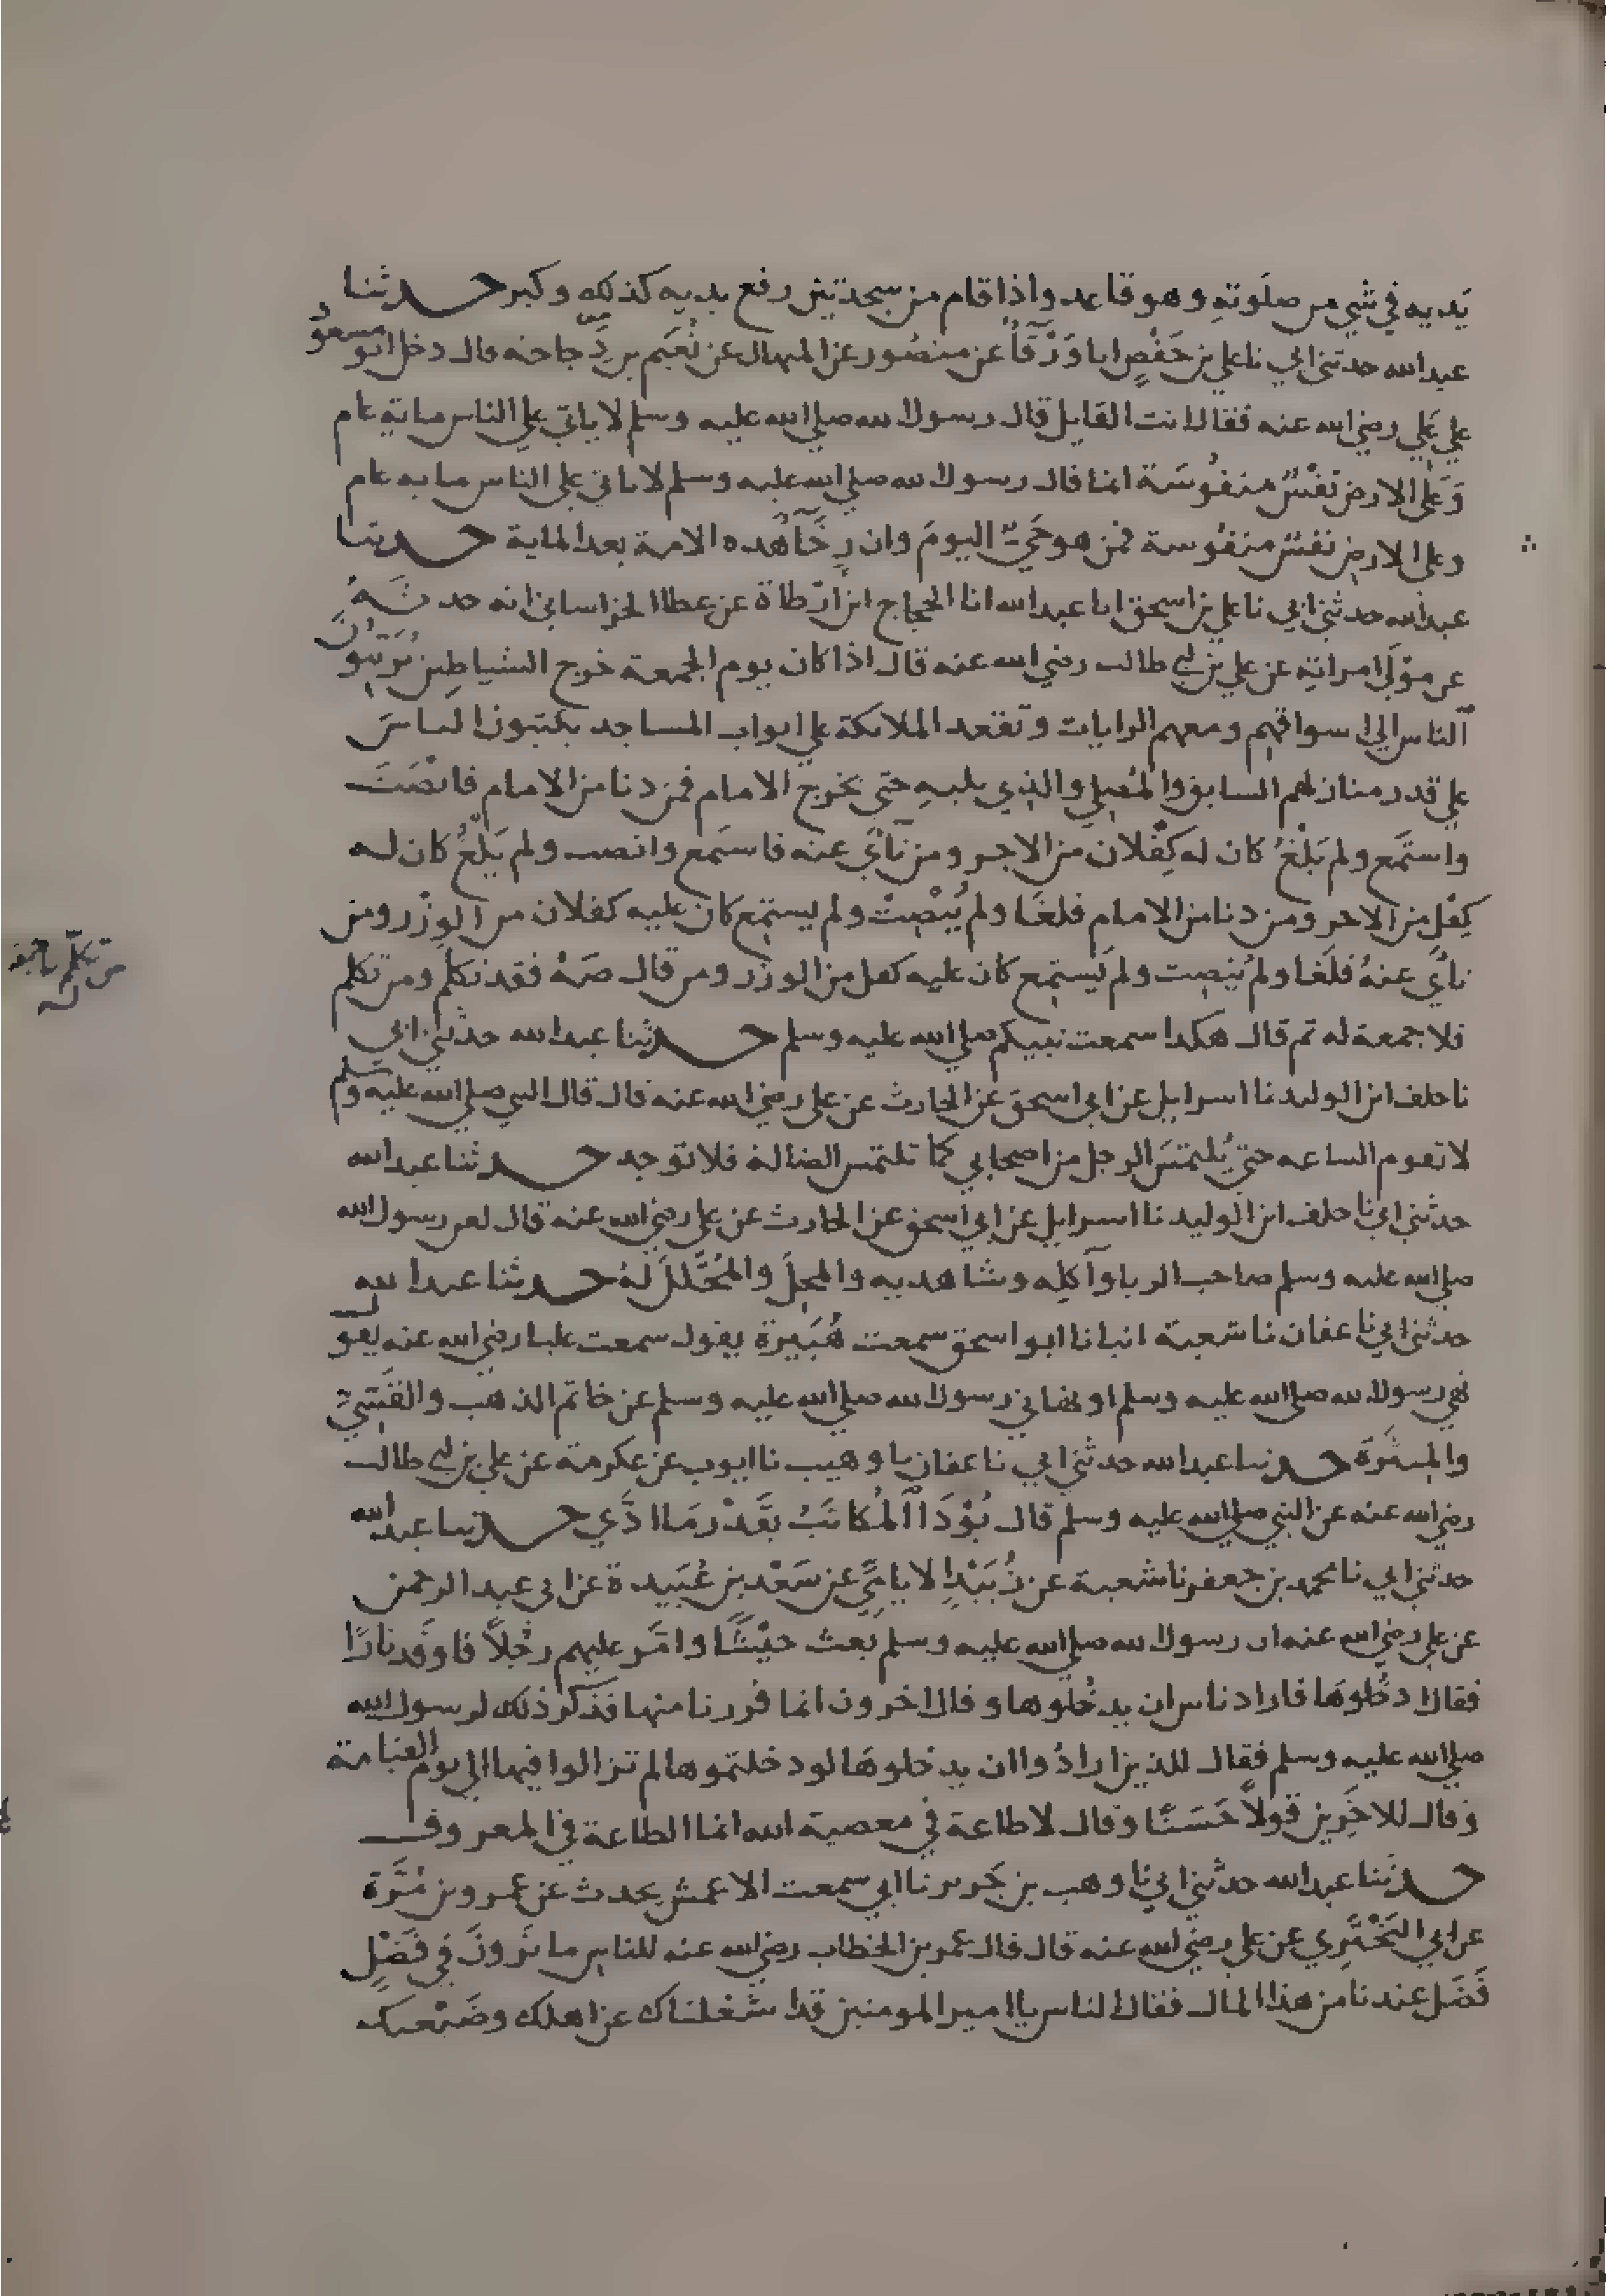 يديه في شي من صلوته وهو قاعد واذا قام من سجدتين رفع يديه كذلك وكبر حدثنا
عبد الله حدثني ابي نا علي بن حفص انا ورقا عن منصور عن المنهال عن نعيم بن دجاجه قال دخل ابو مسعود
علي علي رضي الله عنه فقال انت القايل قال رسول الله صلي الله عليه وسلم لا ياتي علي الناس ماية عام
وعلي الارض نفس منفوسة انما قال رسول الله صلي الله عليه وسلم لا ياتي علي الناس مايه عام
وعلي الارض نفس منفوسة ممن هو حي اليوم وان رخا هذه الامة بعد الماية حدثنا
عبد الله حدثني ابي نا علي بن اسحق انا عبد الله انا الحجاج ابن ارطاة عن عطا الخراساني انه حدثه
عن مولي امراته عن علي بن ابي طالب رضي الله عنه قال اذا كان يوم الجمعة خرج الشياطين يربثون
الناس الي اسواقهم ومعهم الرايات وتقعد الملايكة علي ابواب المساجد يكتبون الناس
علي قدر منازلهم السابق والمصلي والذي يليه حتي يخرج الامام فمن دنا من الامام فانصت
واستمع ولم يلغ كان له كفلان من الاجر ومن ناي عنه فاستمع وانصت ولم يلغ كان له
كفل من الاجر ومن دنا من الامام فلغا ولم ينصت ولم يستمع كان عليه كفلان من الوزر ومن
ناي عنه فلغا ولم ينصت ولم يستمع كان عليه كفل من الوزر ومن قال صه فقد تكلم ومن تكلم
من تكلم فلا جمعة
له
فلا جمعة له ثم قال هكذا سمعت نبيكم صلي الله عليه وسلم حدثنا عبد الله حدثني ابي
نا خلف ابن الوليد نا اسرايل عن ابي اسحق عن الحارث عن علي رضي الله عنه قال قال النبي صلي الله عليه وسلم
لا تقوم الساعه حتي يلتمس الرجل من اصحابي كما تلتمس الضالة فلا توجد حدثنا عبد الله
حدثني ابي نا خلف ابن الوليد نا اسرايل عن ابي اسحق عن الحارث عن علي رضي الله عنه قال لعن رسول الله
صلي الله عليه وسلم صاحب الربا وآكله وشاهديه والمحل والمحلل له حدثنا عبد الله
حدثني ابي نا عفان نا شعبة انبانا ابو اسحق سمعت هبيرة يقول سمعت عليا رضي الله عنه يقول
نهي رسول الله صلي الله عليه وسلم او نهاني رسول الله صلي الله عليه وسلم عن خاتم الذهب والقسي
والميثرة حدثنا عبد الله حدثني ابي نا عفان نا وهيب نا ايوب عن عكرمة عن علي بن ابي طالب
رضي الله عنه عن النبي صلي الله عليه وسلم قال يودا المكاتب بقدر ما ادي حدثنا عبد الله
حدثني ابي نا محمد بن جعفر نا شعبة عن زبيد الايامي عن سعد بن عبيدة عن ابي عبد الرحمن
عن علي رضي الله عنه ان رسول الله صلي الله عليه وسلم بعث جيشا وامر عليهم رجلا فاوقد نارا
فقال ادخلوها فاراد ناس ان يدخلوها وقال اخرون انما فررنا منها فذكر ذلك لرسول الله
صلي الله عليه وسلم فقال للذين ارادوا ان يدخلوها لو دخلتموها لم تزالوا فيها الي يوم القيامة
وقال للاخرين قولا حسنا وقال لا طاعة في معصية الله انما الطاعة في المعروف
حدثنا عبد الله حدثني ابي نا وهب بن جرير نا ابي سمعت الاعمش يحدث عن عمرو بن مرة
عن ابي البختري عن علي رضي الله عنه قال قال عمر بن الخطاب رضي الله عنه للناس ما ترون في فضل
فضل عندنا من هذا المال فقال الناس يا امير المومنين قد شغلناك عن اهلك وضيعتك